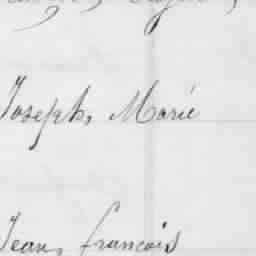 Joseph, Marie
Jean, francois